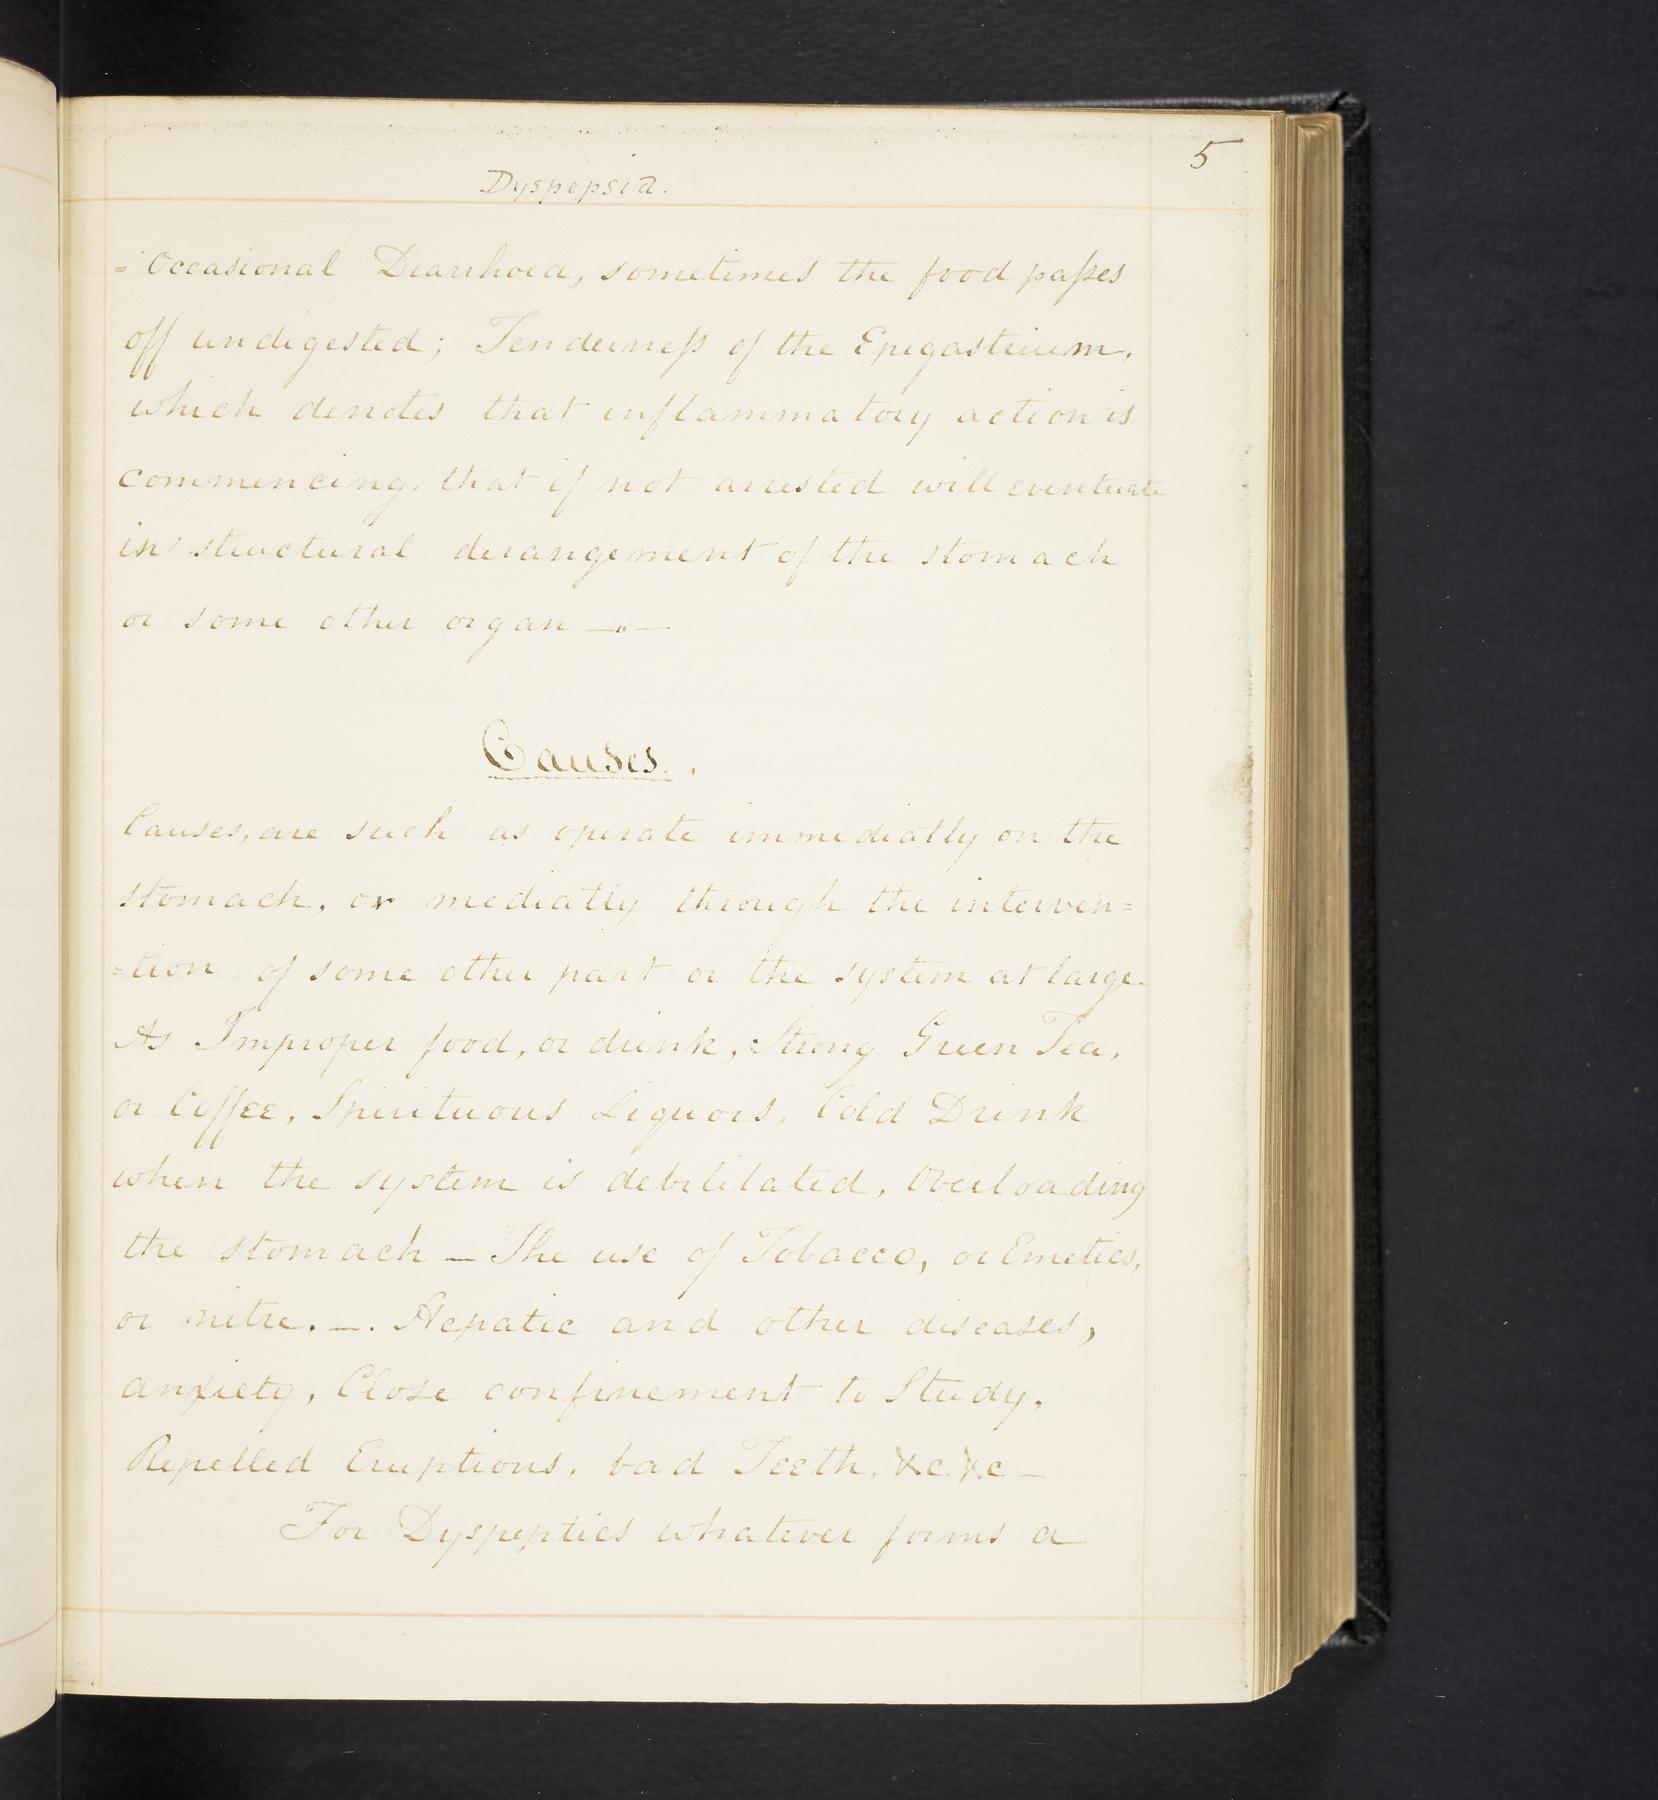 5
Dyspepsia.
= Occasional Diarrhoea, sometimes the food paſses
off undigested; Tenderneſs of the Epigastrium,
which denotes that inflammatory action is
commencing, that if not arrested will eventuate
in structural derangement of the stomach
or some other organ —"—
Causes.
Causes, are such as operate immediatly on the
stomach, or mediatly through the interven=
=tion of some other part or the system at large.
As Improper food, or drink, Strong Green Tea,
or Coffee, Spirituous Liquors, Cold Drink
when the system is debilitated, Overloading
the stomach — The use of Tobacco, or Emetics,
or nitre. —. Hepatic and other diseases,
anxiety, Close confinement to Study,
Repelled Eruptions, bad Teeth, &c. &c —
For Dyspeptics whatever forms a